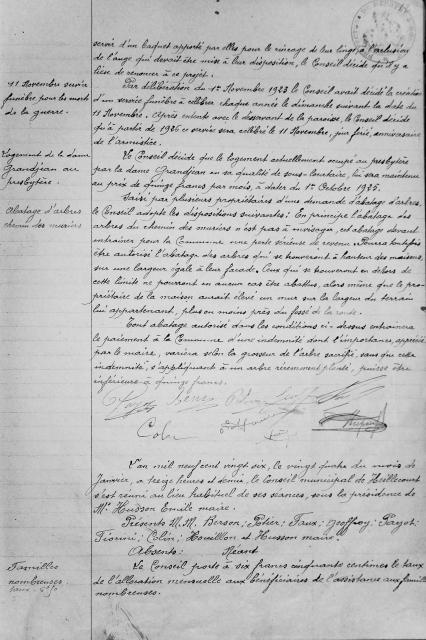 servir d'un baquet apporté par elles pour le rinçage de leur linge, à l'exclusion
de l'auge qui devait être mise à leur disposition, le Conseil décide qu'il y a
lieu de renoncer à ce projet.
11 Novembre service
funèbre pour les morts
de la guerre.
Par délibération du 1er Novembre 1923 le Conseil avait décidé la création
d'un service funèbre à célébrer chaque année le dimanche suivant la date du
11 Novembre. Après entente avec le desservant de la paroisse, le Conseil décide
qu'à partir de 1926 ce service sera célébré le 11 Novembre, jour férié, anniversaire
de l'armistice.
Logement de la dame
Grandjean au
presbytère.
Le Conseil décide que le logement actuellement occupé au presbytère
par la dame Grandjean en sa qualité de sous-locataire, lui sera maintenu
au prix de quinze francs par mois, à dater du 1er Octobre 1925.
Abatage d'arbres
chemin des muriers
Saisi par plusieurs propriétaires d'une demande d'abatage d'arbres,
le Conseil adopte les dispositions suivantes: En principe l'abatage des
arbres du chemin des muriers n'est pas à envisager, cet abatage devant
entraîner pour la Commune une perte sérieuse de revenu. Pourra toutefois
être autorisé l'abatage des arbres qui se trouveront à hauteur des maisons,
sur une largeur égale à leur façade. Ceux qui se trouveront en dehors de
cette limite ne pourront en aucun cas être abattus, alors même que le pro-
priétaire de la maison aurait élevé un mur sur la largeur du terrain
lui appartenant, plus ou moins près du fossé de la route.
Tout abatage autorisé dans les conditions ci-dessus entraînera
le paiement à la Commune d'une indemnité dont l'importance, appréciée
par le maire, variera selon la grosseur de l'arbre sacrifié, sans que cette
indemnité, s'appliquant à un arbre récemment planté, puisse être
inférieure à quinze francs.
Colin
L'an mil neuf cent vingt six, le vingt quatre du mois de
Janvier, à treize heures et demie, le Conseil municipal de
s'est réuni au lieu habituel de ses séances, sous la présidence de
Mr Husson Emile maire.
Présents M.M. Berson; Potier; Faux; Geoffroy; Payot;
Colin; Houillon et Husson maire.
Absents: Néant
Familles
nombreuses
Le Conseil porte à six francs cinquante centimes le taux
de l'allocation mensuelle aux bénéficiaires de l'assistance aux familles
nombreuses.